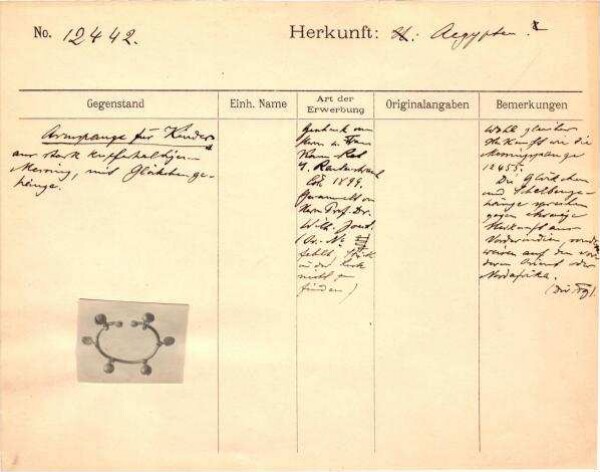 No. 12442.
Herkunft: Aegypten.
Gegenstand
Einh. Name
Art der
Erwerbung
Originalangaben
Bemerkungen
Armspange für Kinder
aus stark kupferhaltigem
Messing, mit Glöckchenge-
hänge.
Geschenk von
Herrn u. Frau
Cöln 1899.
Gesammelt von
Herrn Prof. Dr.
Wilh. Joest.
fehlt,
in der
nicht zu
finden)
Wohl gleicher
Herkunft wie die
Messingspange
12455.
Die Glöckchen
und Schellenge-
hänge sprechen
gegen etwaige
Herkunft aus
Vorderindien,
weisen auf den vor-
deren Orient oder
Nordafrika.